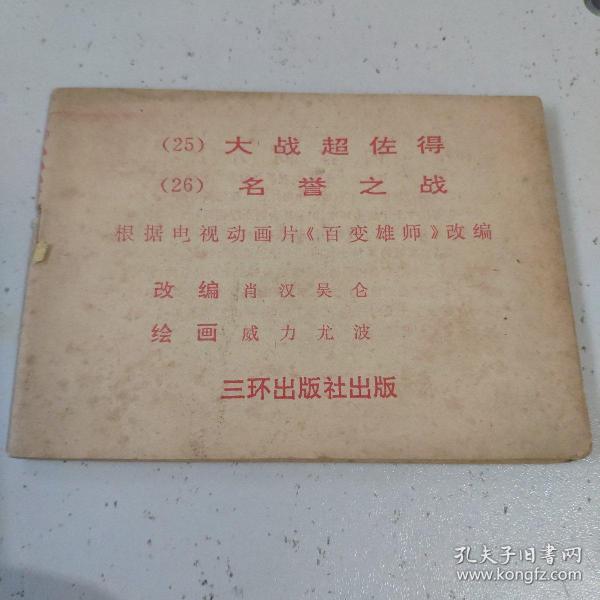 （25）大战超佐得
（26）名誉之战
根据电视动画片《百变雄师》改编
改编 肖汉吴仑
绘画 威力尤波
三环出版社出版
孔夫子旧书网
www.kongfz.com